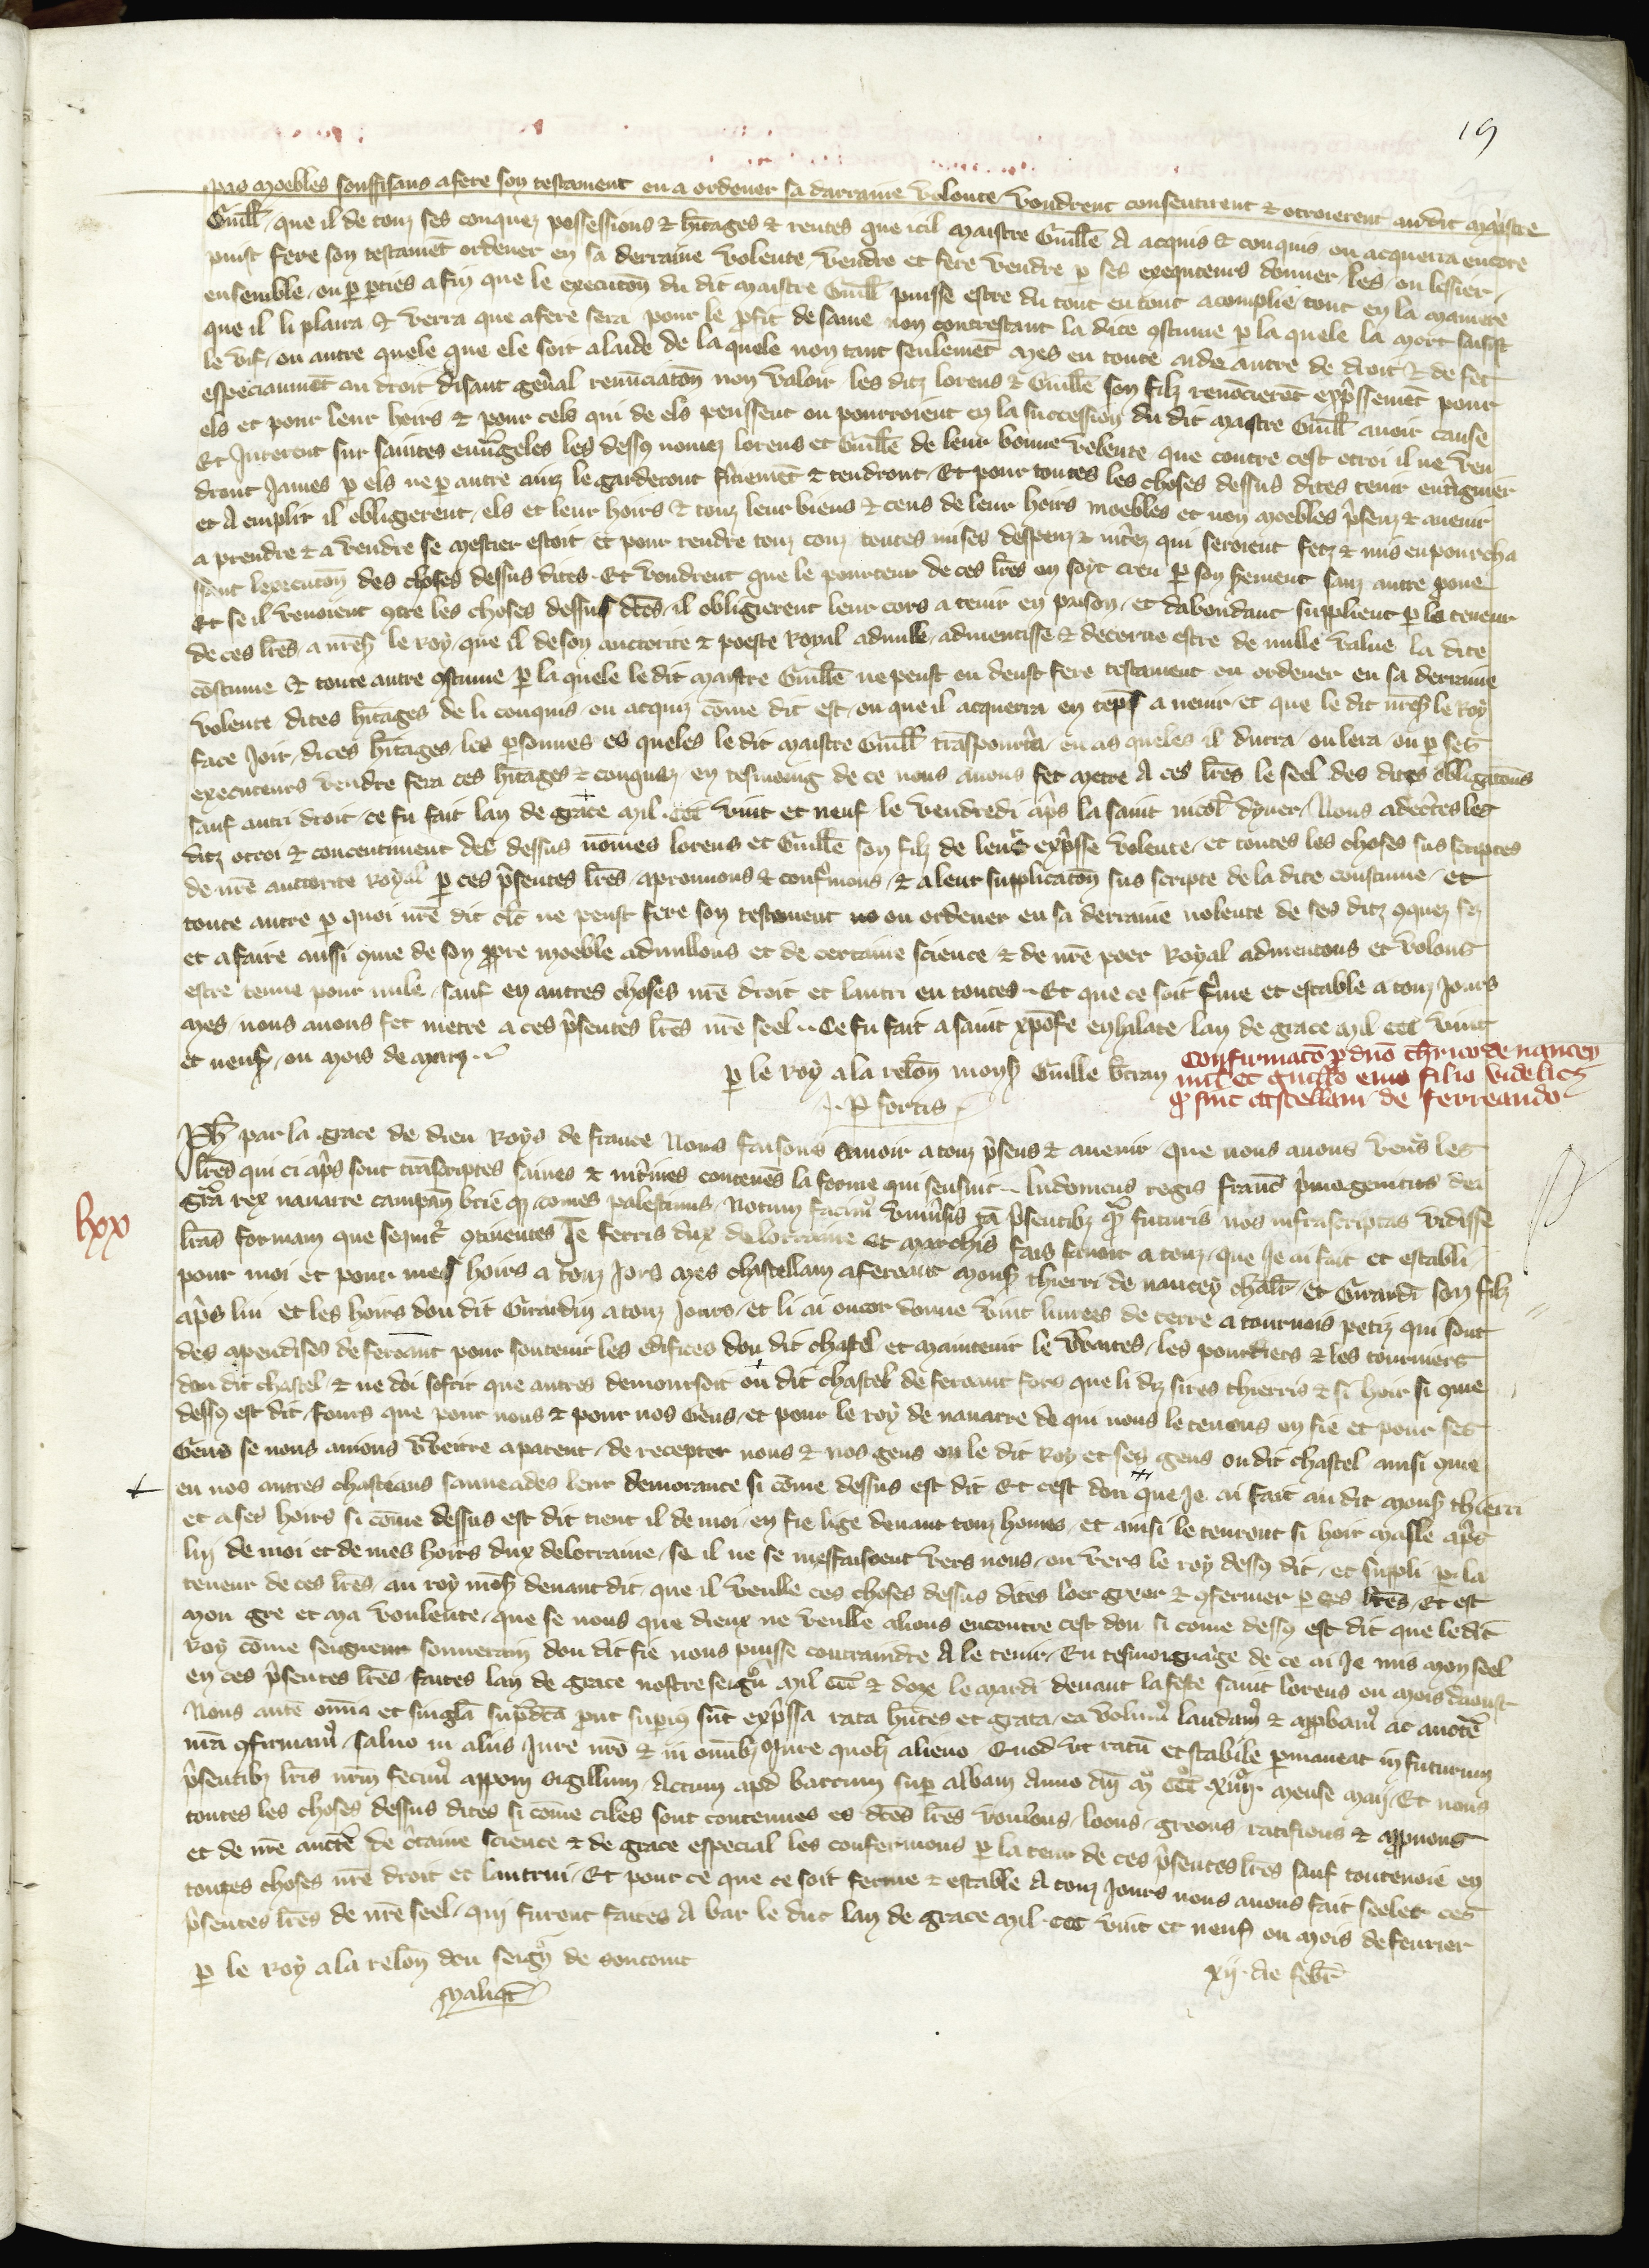 19
pas moebles souffisans a fere son testament ou a ordener sa darraine volente voudrent consentirent & otroierent audit maistre
Guill̄ que il de touz ses conquez possessions & hītages & rentes que icil maistre Guill̄e A acquis & conquis ou acquerra encore
puist fere son testamēt ordener en sa derraine volente, vendre et fere vendre p ses exequteurs donner les ou lessier
ensemble ou p pties a fin que le executon̄ du dit maistre Guill̄ puisse estre du tout en tout acomplie tout en la maniere
que il li plaira & verra que a fere sera pour le pfit de same non contrestant la dite costume p la quele la mort saisist
le vif, ou autre quele que ele soit a laide de la quele non tant seulemēt mes en toute aide autre de droit & de fet
especiaumēt au droit disant gen̄al renūciaton̄ non valoir les ditz lorens & Guill̄e son filz renōcierēt exp̄ssemēt pour
els et pour leur hoirs & pour cels qui de els peussent ou pourroient en la succession du dit maistre Guill̄ auoir cause
Et Jurerent sur saintes euuāgeles les dess9 nomez lorens et Guill̄e de leur bonne volente que contre cest otroi il ne ven
dront James p els ne p autre ainz le garderont fermemēt & tendront, Et pour toutes les choses dessus dites tenir enterigner
et A emplir il obligerent els et leur hoirs & touz leur biens & ceus de leur hoirs moebles et non moebles p̄senz & auenir
a prendre & a vendre se mestier estoit et pour rendre touz couz toutes mises despenz & int̄ez qui seroient fetz & mis en pourcha
sant lexecuton̄ des choses dessus dites. Et voudrent que le porteur de ces lr̄es en soyt creu p son s̄ement sanz autre proue
Et se il venoient 9tre les choses dessus dc̄es, il obligierent leur cors a tenir en prison, et dabondant supplient p la teneur
de ces lr̄es, a nr̄es̄ le Roy, que il de son auctorite & poeste Royal adnulle, adnientisse & decerne estre de nulle value la dite
cōstume & toute autre costume p la quele le dit maistre Guill̄e ne peust ou deust fere testament ou ordener en sa derraine
volente dites hītages de li conquis ou acquiz cōme dit est, ou que il acquerra en tēps a uenir, et que le dit nr̄es̄ le Roy
face Joir dices hītages, les psonnes es queles le dit maistre Guill̄ trāsportera, ou as queles il durra, ou lera, ou p ses
executeurs vendre fera ces hītages & conquez, en tesmoing de ce nous auons fet metre A ces lr̄es le seel des dites obligatons
sauf autri droit, ce fu fait lan de grace mil .ccc vint et neuf le vendredi ap̄s la saint nicol̄ dyuer, Nous adec̄tes les
ditz otroi & concentiment des dessus nōmes lorens et Guill̄e son filz de leur exp̄sse volente, et toutes les choses sus scriptes
de nr̄e auctorite Royal p ces p̄sentes lr̄es, aprouuons & confermons, & a leur supplicaton̄ sus scripte de la dite coustume, et
toute autre p quoi nr̄e dit clr̄c ne peust fere son testament ou ordener en sa derraine uolente de ses ditz 9quez fez
et a faire aussi 9me de son ppre moeble adnullons et de certaine science & de nr̄e poer Royal adnientons et volons
estre tenue pour nulle, sauf en autres choses nr̄e droit et lautri en toutes. Et que ce soit f̄me et estable a touz Jours
mes, nous auons fet metre a ces p̄sentes lr̄es nr̄e seel. Ce fu fait a saint xpōfe en halate, lan de grace mil ccc vint
et neuf, ou mois de marz.
p le Roy a la relon̄ mons̄ Guill̄e btran
. P fortis
Confirmatō p dnō thr̄ico de nancey
mil̄ et guill̄o eius filio videlicz
q̄ sint castellani de ferreando
lxx
Ph̄ par la grace de dieu Roys de france Nous faisons sauoir a touz p̄sens & auenir que nous auons veus les
lr̄es qui ci ap̄s sont trāscriptes saines & int̄ines contenēs la forme qui sensuit. ludouicus regis franc̄ p̄mogenitus dei
gr̄a rex nauarre campan̄ brie q3 comes palestinus, Notum facim9 vniūsis tā p̄sentibz q̄ futuris nos infrascriptas vidisse
lr̄as formam que sequit̄ 9tinentes Je ferris dux de lorraine et marchis fais sauoir a touz que Je ai fait et establi
pour moi et pour mes hoirs a touz Jors mes chastellain a fereant mons̄ thierri de nancey chlr̄ et Girardī son filz
ap̄s lui et les hoirs dou dit Girardin a touz Jours, et li ai oncor donne vint liurees de terre a tournois petiz qui sont
des apendises de fereant pour soutenir les edifices dou dit chastel et maintenir le waites, les portiers & les tourniers
dou dit chastel & ne doi sofrir que autres demoursoit ou dit chastel de fereant fors que li diz sires thierris & si hoir si 9me
dess9 est dit, fours que pour nous & pour nos Gens, et pour le roy de nauarre de qui nous le tenons en fie et pour ses
Gens se nous auions werre aparent, de recepter nous & nos gens ou le dit Roy et ses gens ou dit chastel ainsi 9me
en nos autres chasteaus sauueades leur demorance si cōme dessus est dit Et cest don que Je ai fait au dit mons̄ thierri
et a ses hoirs si cōme dessus est dit tient il de moi en fie lige deuant touz homes, et ainsi le tenront si hoir masle ap̄s
lui de moi et de mes hoirs dux de lorraine, se il ne se meffaisoient vers nous, ou vers le roy dess9 dit, et suppli p la
teneur de ces lr̄es, au roy mōs̄ deuant dit, que il veulle ces choses dessus dites loer greer & 9fermer p ses lr̄es, Et est
mon gre et ma voulente, que se nous que dieux ne veulle aliens encontre cest don si come dess9 est dit que ledit
Roy cōme seigneur souuerain dou dit fie nous puisse contraindre A le tenir, En tesmoignage de ce ai Je mis mon seel
en ces p̄sentes lr̄es faites lan de grace nostre seign̄ mil ccc & doze le mardi deuant la feste saint lorens ou mois daoust
Nos autē oīnia et singl̄a sup̄dc̄a put sup̄ius sūt exp̄ssa rata hn̄tes et grata, ea volum9 laudam9 & appbam9 ac auctē
nr̄a 9firmam9, saluo in aliis Jure nr̄o & in omībz Jure quolz alieno Quod vt ratū et stabile pmaneat in futurum
p̄sentibz lr̄is nr̄m fecim9 apponi sigillum, Actum apd barrum sup albam Anno dn̄i mo ccco xiiijo mense maij, Et nous
toutes les choses dessus dites si cōme elles sont contenues es dc̄es lr̄es voulons, loons, greons ratifions & appuons
et de nr̄e auctē de c̄taine science & de grace especial les confermons p la teneur de ces p̄sentes lr̄es sauf toutenoie en
toutes choses nr̄e droit et lautrui, Et pour ce que ce soit ferme & estable A touz Jours nous auons fait seeler ces
p̄sentes lr̄es de nr̄e seel, qui furent faites A bar le duc lan de grace mil ccc vint et neuf ou mois de feurier
p le Roy a la relon̄ dou seign̄ de soucourt
xij. die febr̄
maliqt̄